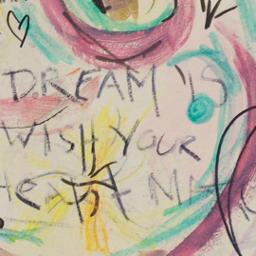 DREAM IS
WISH YOUR
HEART MA